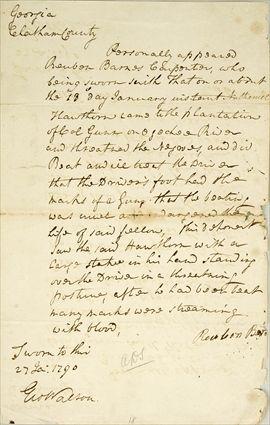 Georgia
Chatham County
Personally appeared
Reuben Barnes Carpenter, who
being sworn saith that on or about
the 13th day January instant
Hawthorn came to the plantation
of Col Gunn on Ogechee River
and threatned the Negroes, and did
Beat and ill treat the Driver
that the Drivers foot had the
marks of a Gun; that the beating
was cruel and endangered the
life of said fellow, this deponent
saw the said Hawthorn with a
large stake in his hand standing
over the Driver in a threatning
posture, after he had been beat
many marks were streaming
with blood,
Reuben
Sworn to this
27 Ja. 1790
Geo Walton
18